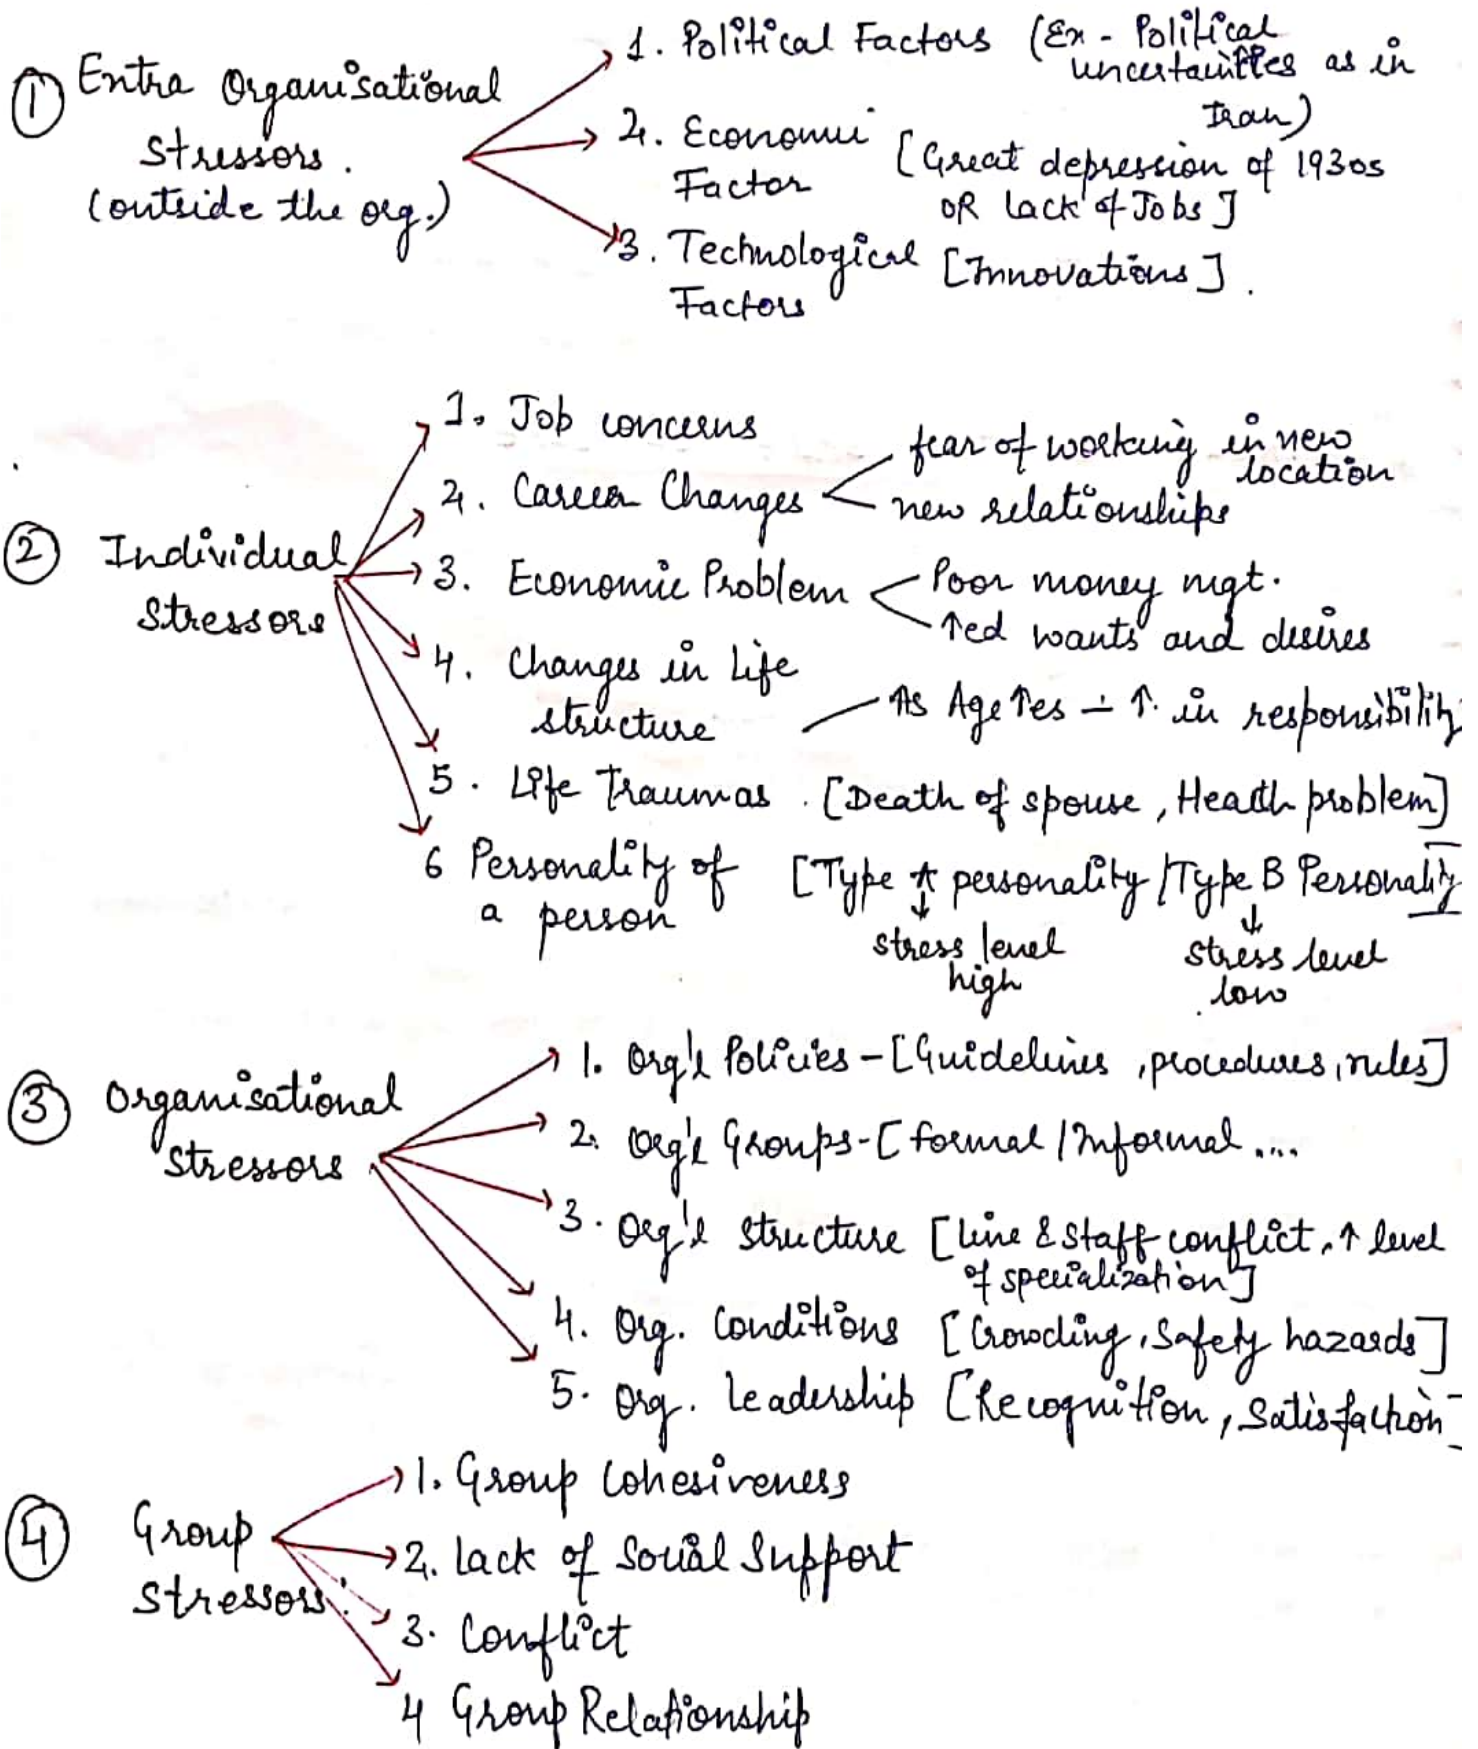 ① Entra Organisational
stressors.
(outside the org.)
1. Political Factors (Ex - Political
uncertainties as in
Iran)
2. Economic
Factor [Great depression of 1930s
OR lack of Jobs]
3. Technological [Innovations].
Factors
② Individual
stressors
1. Job concerns
2. Career Changes
fear of working in new
location
new relationships
3. Economic Problem
Poor money mgt.
↑ed wants and desires
4. Changes in Life
structure
As Age ↑es - ↑ in responsibility
5. Life Traumas. [Death of spouse, Health problem]
6 Personality of [Type A personality / Type B Personality]
a person
↓ ↓
stress level stress level
high low
③ Organisational
stressors
1. Org'l Policies - [Guidelines, procedures, rules]
2. Org'l Groups - [formal / Informal ....
3. Org'l structure [line & staff conflict, ↑ level
of specialization]
4. Org. conditions [Crowding, Safety hazards]
5. Org. Leadership [Recognition, Satisfaction]
④ Group
stressors:
1. Group Cohesiveness
2. Lack of Social Support
3. Conflict
4 Group Relationship